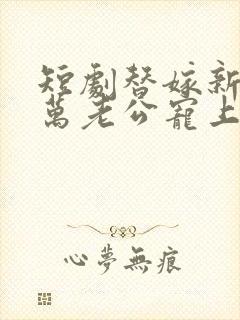 短劇替嫁新
萬老公寵上
心夢無痕